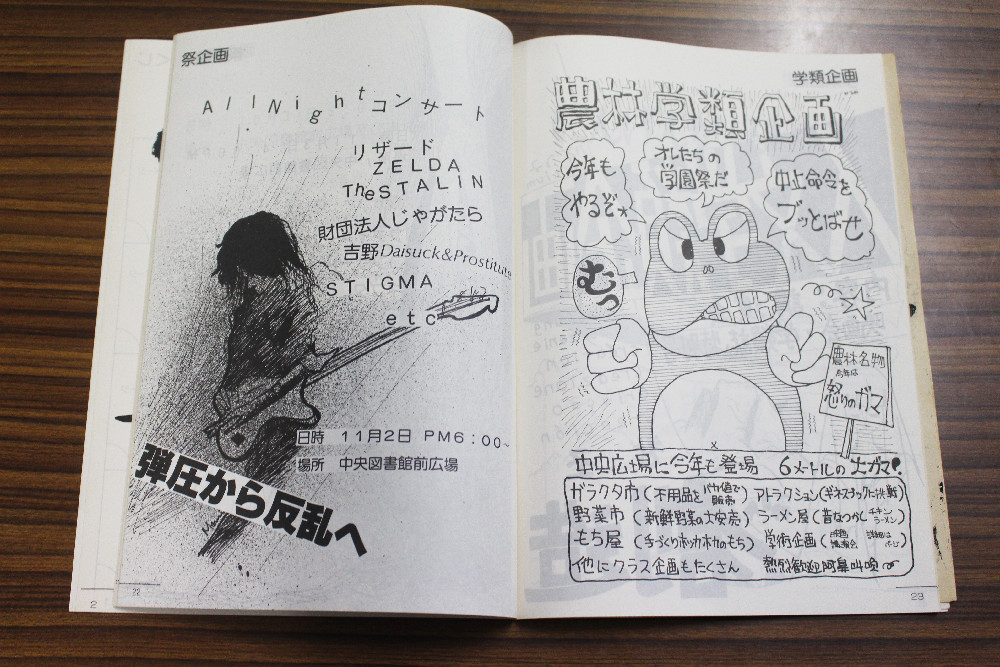 祭企画
All Night コンサート
リザード
ZELDA
The STALIN
財団法人じゃがたら
吉野Daisuck&Prostitute
STIGMA
etc
日時 11月2日 PM6:00~
場所 中央図書館前広場
弾圧から反乱へ
22
2
学類企画
農林学類企画
今年も
やるぞ
オレたちの
学園祭だ
中止命令を
ブッとばせ
むっ
農林名物
今年は
怒りのガマ
中央広場に今年も登場 6メートルの大ガマ!
ガラクタ市(不用品をバカ値で販売) アトラクション(ギネスブックに挑戦)
野菜市(新鮮野菜の大安売) ラーメン屋(昔なつかしチキンラーメン)
もち屋(手づくりホッカホカのもち) 学術企画(講演会 詳細は
他にクラス企画もたくさん 熱烈歓迎阿鼻叫喚
23